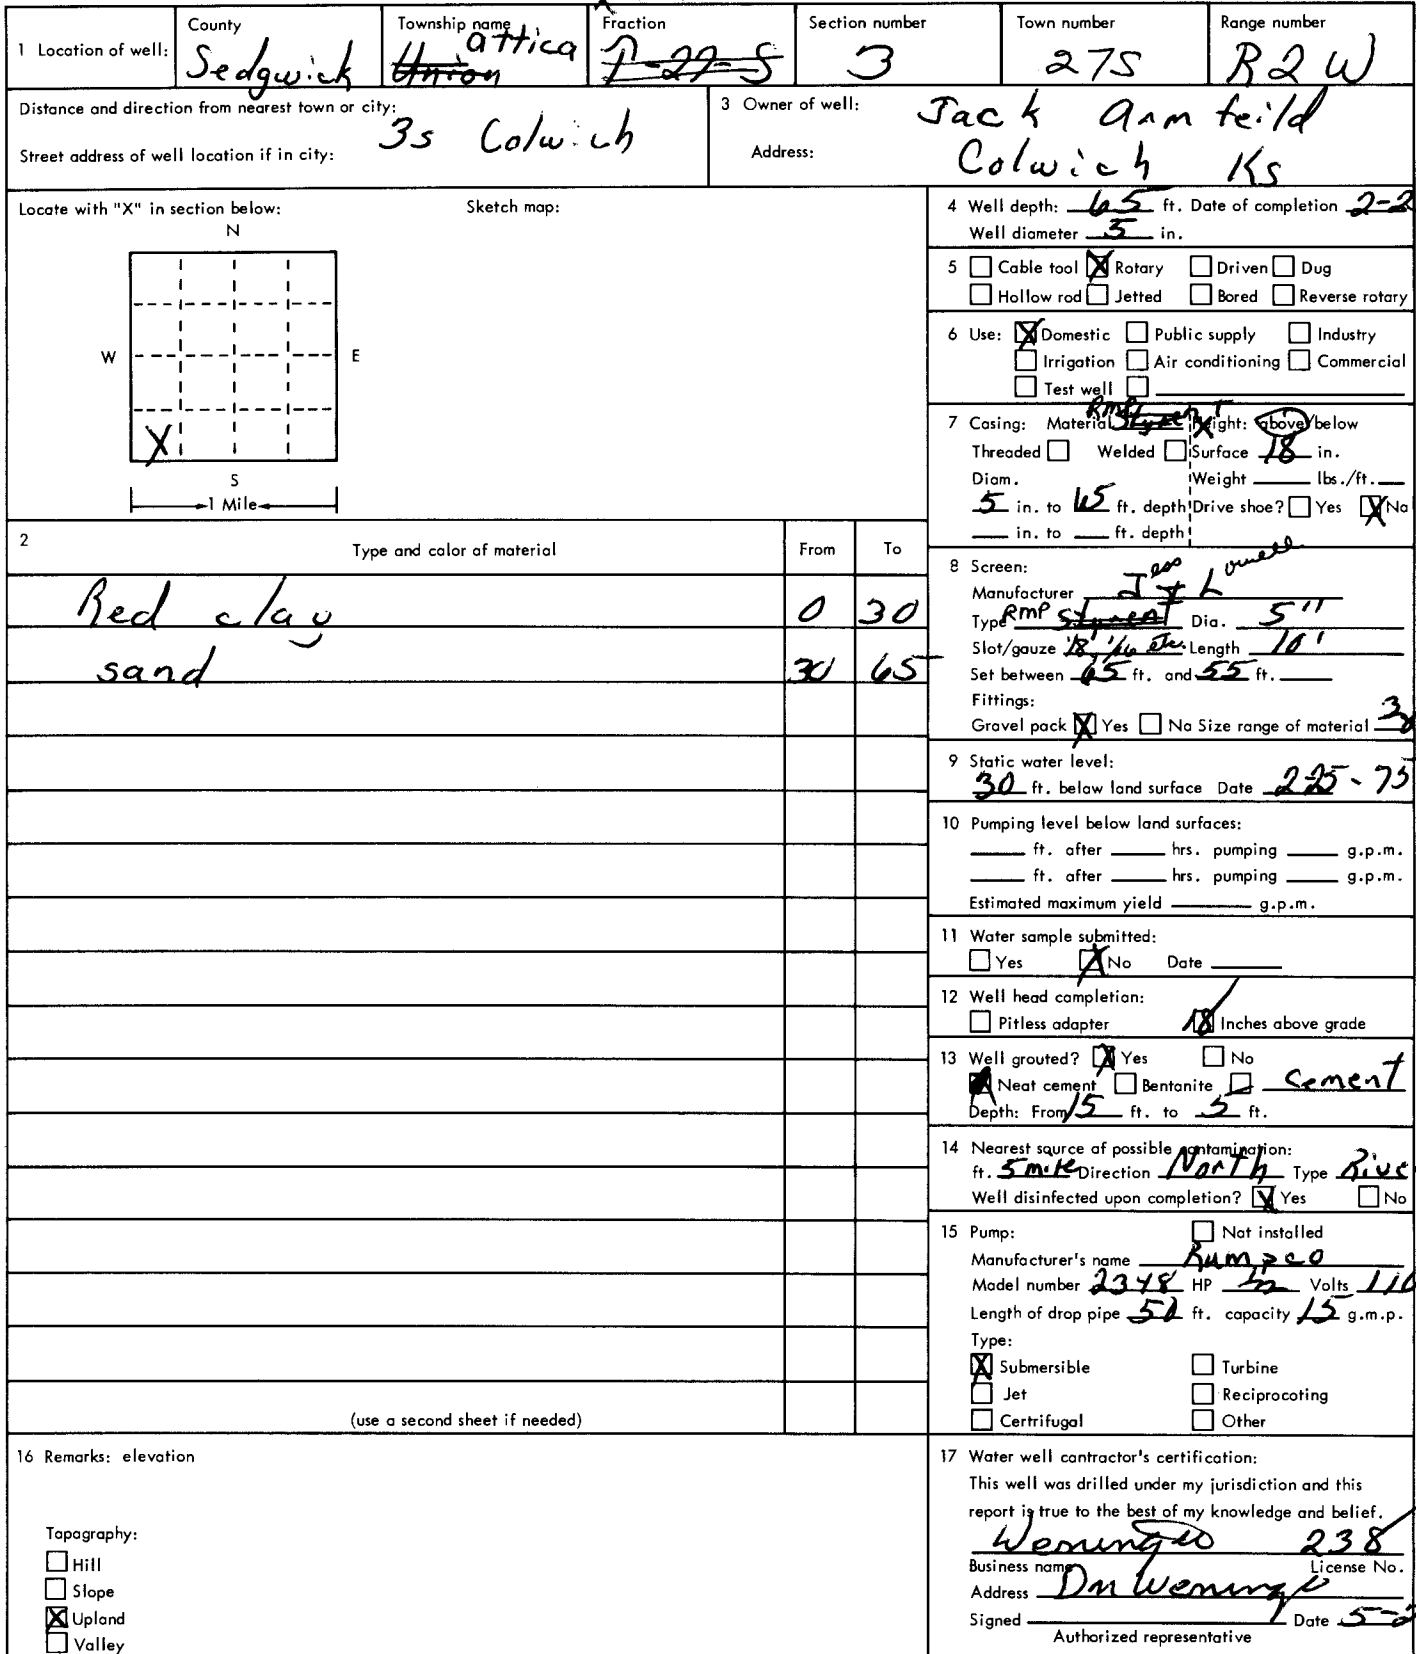 1 Location of well:
County
Sedgwick
Township name
Union attica
Fraction
T-27-S
Section number
3
Town number
27S
Range number
R2W
Distance and direction from nearest town or city:
3s Colwich
Street address of well location if in city:
3 Owner of well: Jack Armfeild
Address: Colwich Ks
Locate with "X" in section below:
Sketch map:
N
W E
X
S
1 Mile
4 Well depth: 65 ft. Date of completion 2-2
Well diameter 5 in.
5 Cable tool X Rotary Driven Dug
Hollow rod Jetted Bored Reverse rotary
6 Use: X Domestic Public supply Industry
Irrigation Air conditioning Commercial
Test well
7 Casing: Material RMP Height: above/below
Threaded Welded Surface 18 in.
Diam. Weight lbs./ft.
5 in. to 65 ft. depth Drive shoe? Yes X No
in. to ft. depth
2 Type and color of material From To
Red clay 0 30
sand 30 65
(use a second sheet if needed)
8 Screen:
Manufacturer Jess & Lowell
Type RMP Dia. 5"
Slot/gauze 1/8, 1/16 etc. Length 10'
Set between 65 ft. and 55 ft.
Fittings:
Gravel pack X Yes No Size range of material
9 Static water level:
30 ft. below land surface Date 2-25-75
10 Pumping level below land surfaces:
ft. after hrs. pumping g.p.m.
ft. after hrs. pumping g.p.m.
Estimated maximum yield g.p.m.
11 Water sample submitted:
Yes X No Date
12 Well head completion:
Pitless adapter 18 Inches above grade
13 Well grouted? X Yes No
X Neat cement Bentonite cement
Depth: From 15 ft. to 5 ft.
14 Nearest source of possible contamination:
ft. 5 mile Direction North Type Rive
Well disinfected upon completion? X Yes No
15 Pump: Not installed
Manufacturer's name Rumpco
Model number 2348 HP 1/2 Volts 110
Length of drop pipe 51 ft. capacity 15 g.m.p.
Type:
X Submersible Turbine
Jet Reciprocating
Certrifugal Other
16 Remarks: elevation
Topography:
Hill
Slope
X Upland
Valley
17 Water well contractor's certification:
This well was drilled under my jurisdiction and this
report is true to the best of my knowledge and belief.
238
Business name License No.
Address
Signed Date 5-2
Authorized representative